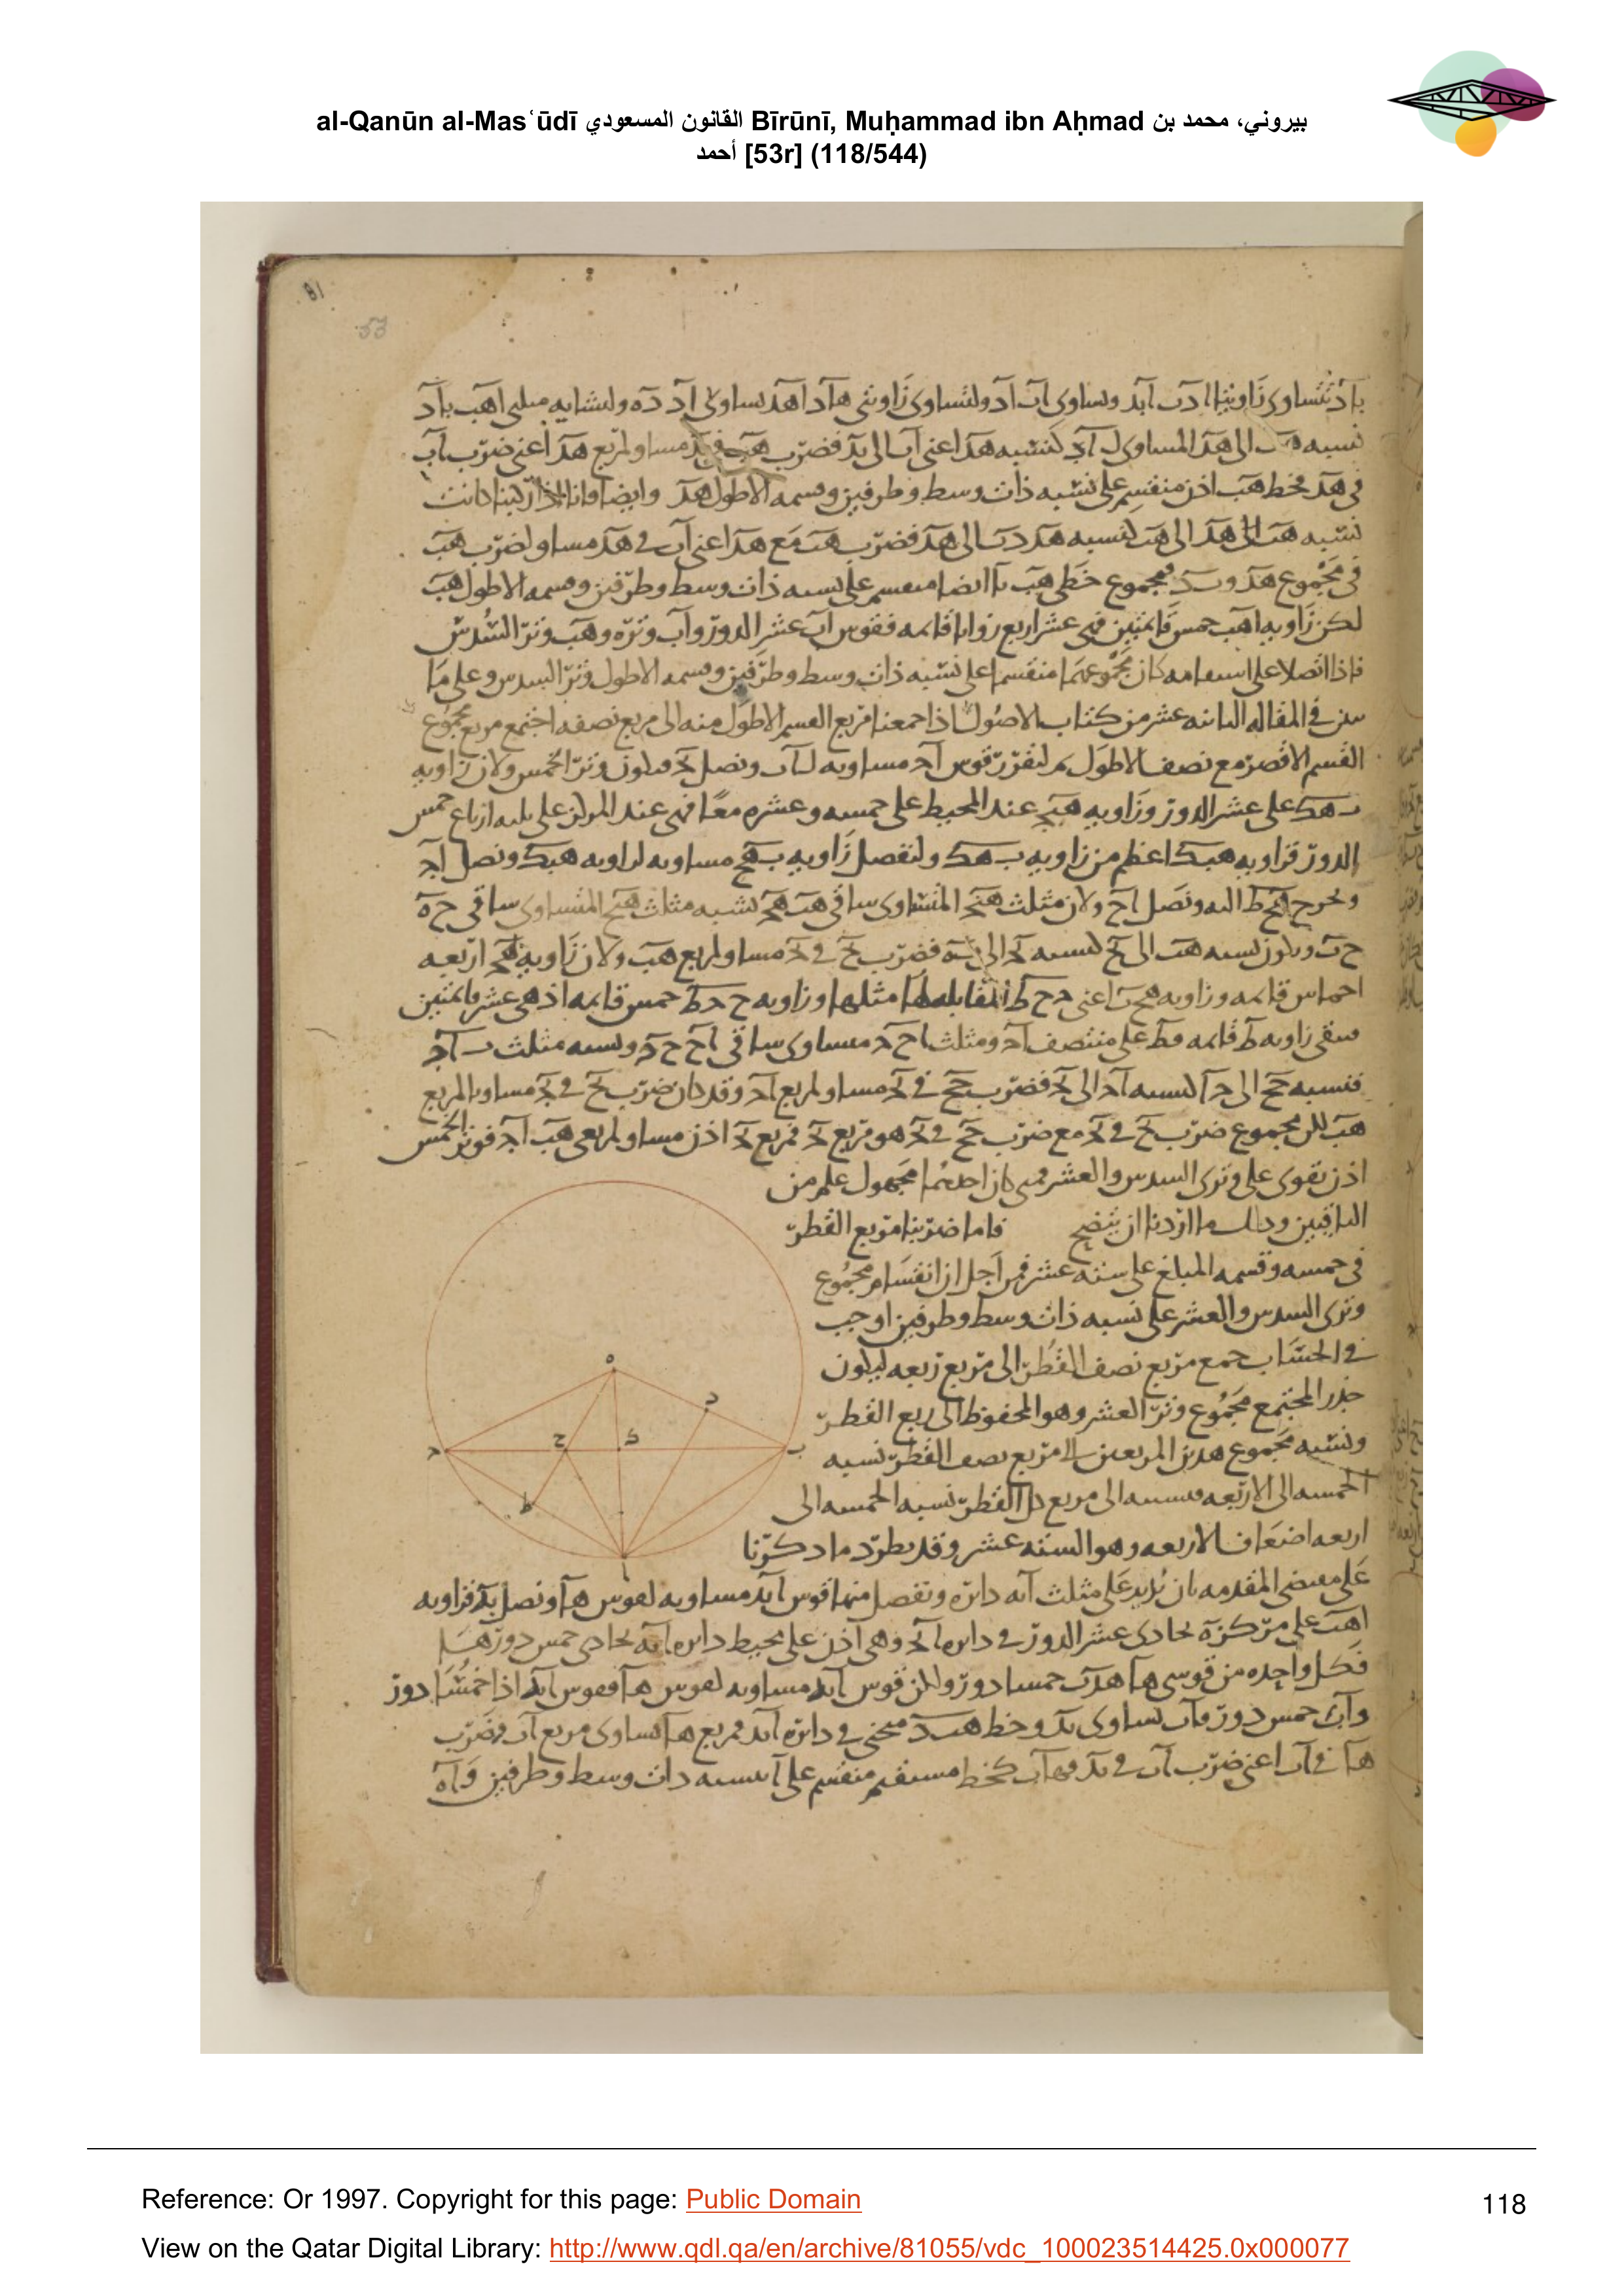 al-Qanūn al-Masʿūdī القانون المسعودي Bīrūnī, Muḥammad ibn Aḥmad بيروني، محمد بن
أحمد [53r] (118/544)
81
53
نسبه الى هد المساوى ل اد كنسبه هد اعنى اب الى بد فضرب هب فى بد مساو لمربع هد اعنى ضرب اب
فى هد فخط هب اذن منقسم على نسبه ذات وسط وطرفين وقسمه الاطول هد وايضا فانا اذا ركبنا كانت
نسبه هب الى هد الى هب كنسبه هد دب الى هد فضرب هب مع هد اعنى اب فى هد مساو لضرب هب
فى مجموع هد وبد فمجموع خطى هب با ايضا منقسم على نسبه ذات وسط وطرفين وقسمه الاطول هب
لكن زاويه اهب خمس قايمتين فهى عشر اربع زوايا قايمه فقوس اب عشر الدور واب وتره وهب وتر السدس
فاذا اتصلا على استقامه كان مجموعهما منقسما على نسبه ذات وسط وطرفين وقسمه الاطول وتر السدس وعلى ما
بين فى المقاله الثالثه عشر من كتاب الاصول اذا جمعنا مربع القسم الاطول منه الى مربع نصفه اجتمع مربع مجموع
القسم الاقصر مع نصف الاطول ثم لنفرز قوس اج مساويه ل اب ونصل بج فيكون وتر الخمس ولان زاويه
ب هك على عشر الدور وزاويه هبج عند المحيط على خمسه وعشره معا فهى عند المركز على ثلثه ارباع خمس
الدور فزاويه هبك اعظم من زاويه ب هك ولنفصل زاويه ب هح مساويه لزاويه هبك ونصل اج
ونخرج هح ط اليه ونصل اح ولان مثلث هبج المتساوى ساقى هب هج يشبه مثلث هبح المتساوى ساقى ح ه
ح ب ويكون نسبه هب الى بح كنسبه بج الى به فضرب بح فى بج مساو لمربع هب ولان زاويه هج اربعه
اخماس قايمه وزاويه هح ب اعنى ج ح ط المقابله لها مثلها وزاويه ح ج ط خمس قايمه اذ هى عشر قايمتين
تبقى زاويه ط قايمه فط على منتصف اج ومثلث اح ج مساوى ساقى اح ح ج ويشبه مثلث ب اج
فنسبه جح الى جا كنسبه اج الى بج فضرب جح فى بج مساو لمربع اج وقد كان ضرب بح فى بج مساويا لمربع
هب لكن مجموع ضرب بح فى بج مع ضرب جح فى بج هو مربع بج فمربع بج اذن مساو لمربعى هب اج فوتر الخمس
اذن يقوى على وترى السدس والعشر فمتى كان احدهما مجهول علم من
الباقيين وذلك ما اردنا ان يتضح فاما ضربنا مربع القطر
فى خمسه وقسمه المبلغ على سته عشر فمن اجل ان انقسام مجموع
وترى السدس والعشر على نسبه ذات وسط وطرفين اوجب
فى الحساب جمع مربع نصف القطر الى مربع ربعه ليكون
جذر المجتمع مجموع وتر العشر وهو المحفوظ الى ربع القطر
ونسبه مجموع هذين المربعين الى مربع نصف القطر نسبه
الخمسه الى الاربعه ونسبته الى مربع كل القطر نسبه الخمسه الى
اربعه اضعاف الاربعه وهو السته عشر وقد يطرد ما ذكرنا
على مقتضى المقدمه بان ندير على مثلث ابه دايره ونفصل منها قوس ابد مساويه لقوس ها ونصل بد فزاويه
اهب على مركزه تحاذى عشر الدور فى دايره ابج وهى اذن على محيط دايره ابه تحاذى خمس دورها
فكل واحده من قوسى ها هدب خمسا دور ولكن قوس ابد مساويه لقوس ها فقوس ابد اذا خمسا دور
واب خمس دور فاب يساوى بد وخط هبد منحنى فى دايره ابد فمربع ها يساوى مربع اب وضرب
ها فى اب اعنى ضرب اب فى بد فهاب كخط مستقيم منقسم على ا بنسبه ذات وسط وطرفين واه
ه
د
ح
ك
ب
ج
ط
ا
Reference: Or 1997. Copyright for this page: Public Domain
118
View on the Qatar Digital Library: http://www.qdl.qa/en/archive/81055/vdc_100023514425.0x000077